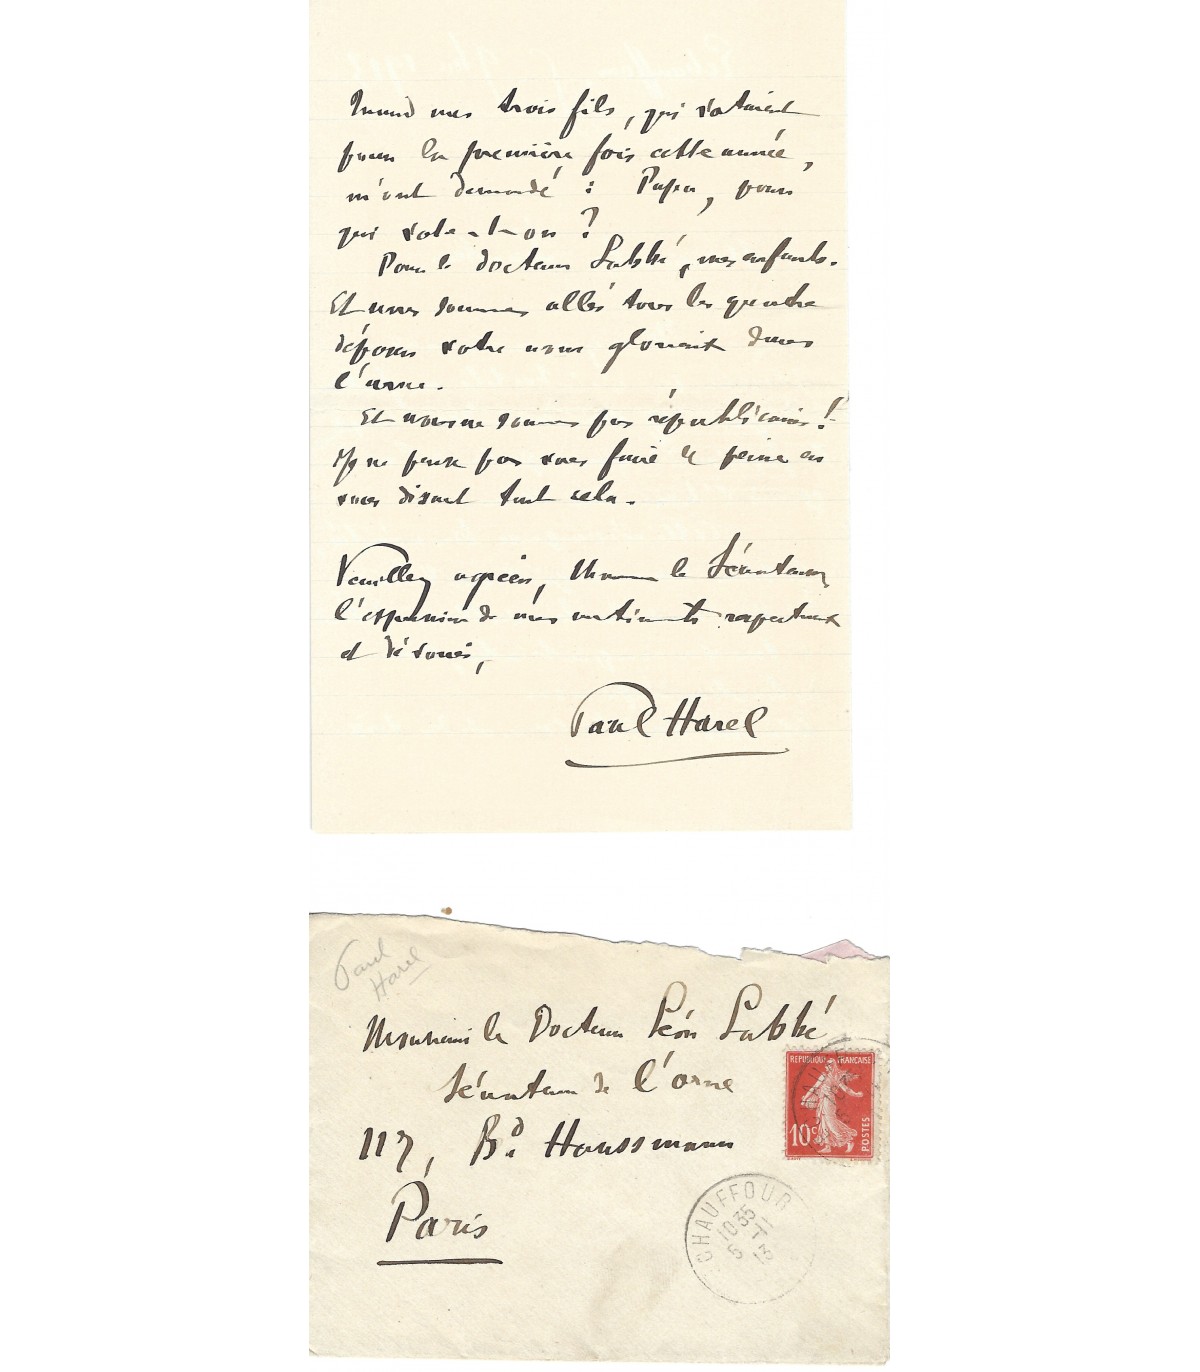 Quand mes trois fils, qui votaient
pour la première fois cette année,
m'ont demandé : Papa, pour
qui vote-t-on ?
Pour le docteur Labbé, mes enfants.
Et nous sommes allés tous les quatre
déposer votre nom glorieux dans
l'urne.
Et nous ne sommes pas républicains !
Je ne pense pas vous faire de peine en
vous disant tout cela.
Veuillez agréer, Monsieur le Sénateur,
l'expression de mes sentiments respectueux
et dévoués,
Paul Harel
Paul
Harel
Monsieur le Docteur Léon Labbé
Sénateur de l'Orne
117, Bd Haussmann
Paris
REPUBLIQUE FRANÇAISE
10c
POSTES
CHAUFFOUR
10 35
5 -11
13